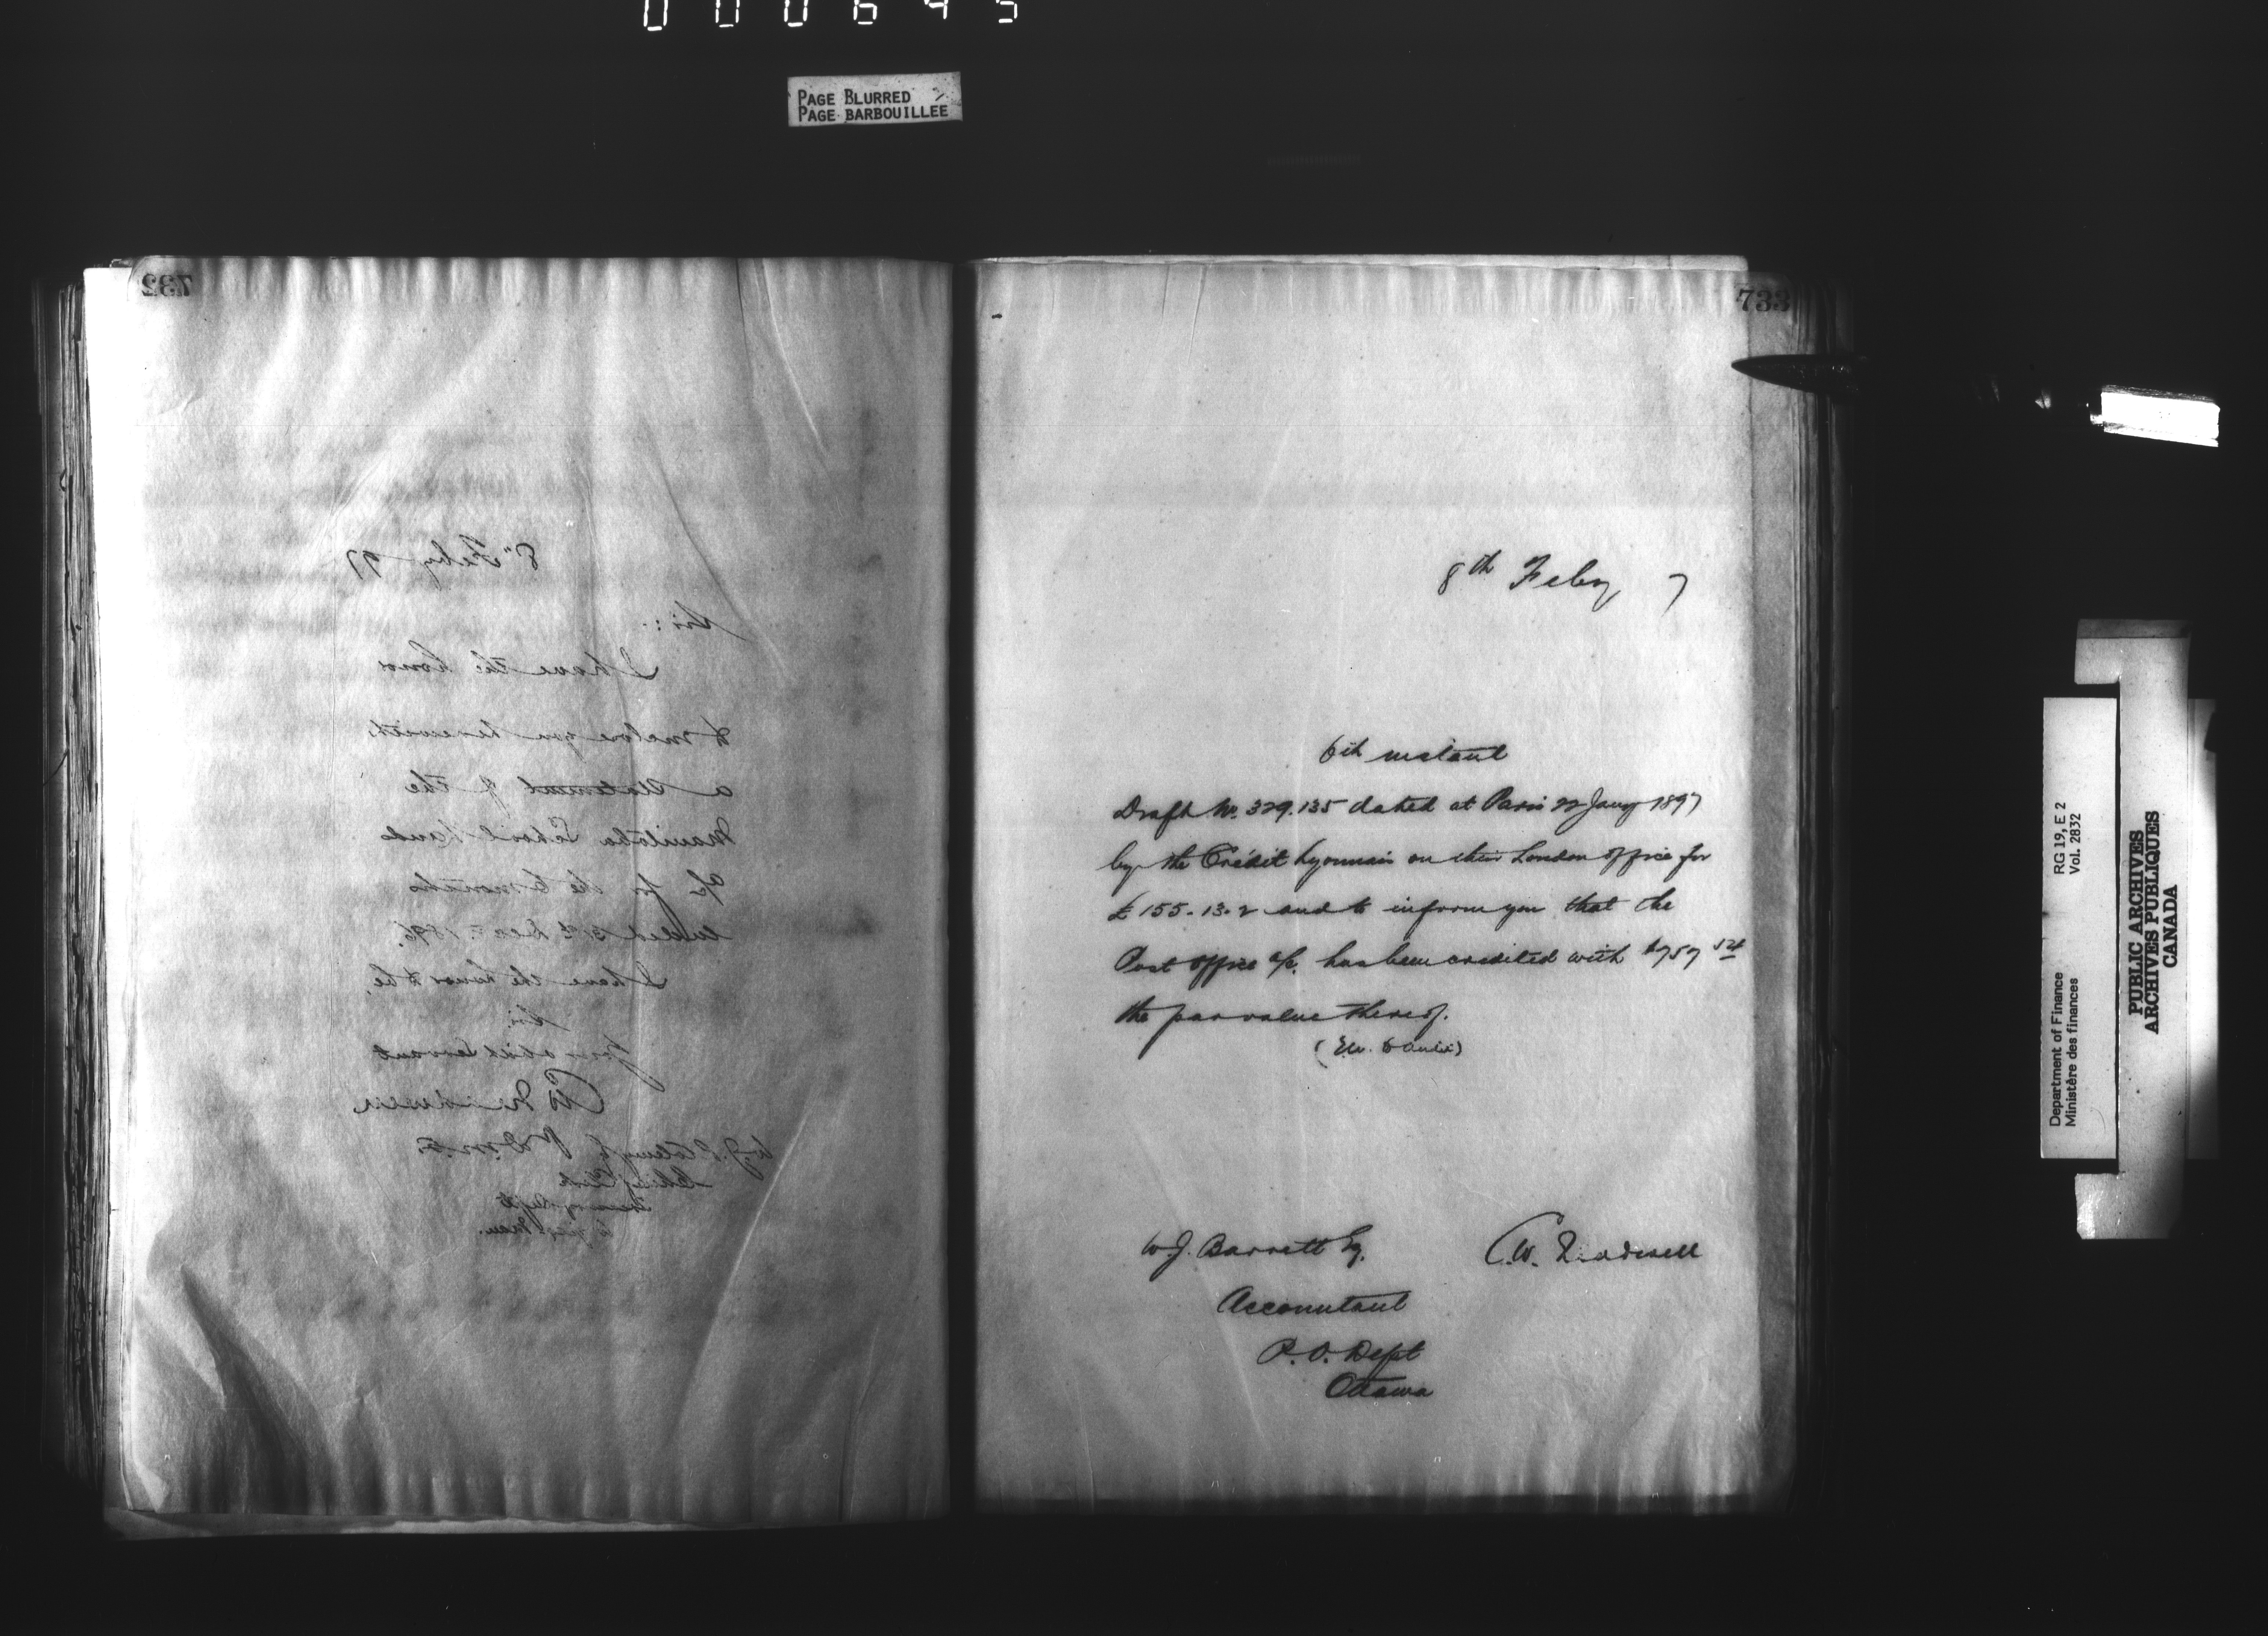 000645
PAGE BLURRED
PAGE BARBOUILLEE
732
8" Feby 97
Sir:
I have the honor
to enclose you herewith
a Statement of the
Manitoba School Lands
a/c for the 6 months
ended 31st Dec. 1896.
I have the honor to be,
Sir
Your obdt Servant
for D.M.F.
Chief Clerk
Treasury Dept
Man.
733
8th Feby 7
6th instant
Draft No. 329.135 dated at Paris 22 Jany 1897
by the Crédit Lyonnais on their London office for
£155.13.2 and to inform you that the
Post Office a/c. has been credited with $757 54
the par value thereof.
W.J. Barrett Esq.
C.W. Treadwell
Accountant
P.O. Dept
Ottawa
Department of Finance
Ministère des finances
RG 19, E 2
Vol. 2832
PUBLIC ARCHIVES
ARCHIVES PUBLIQUES
CANADA